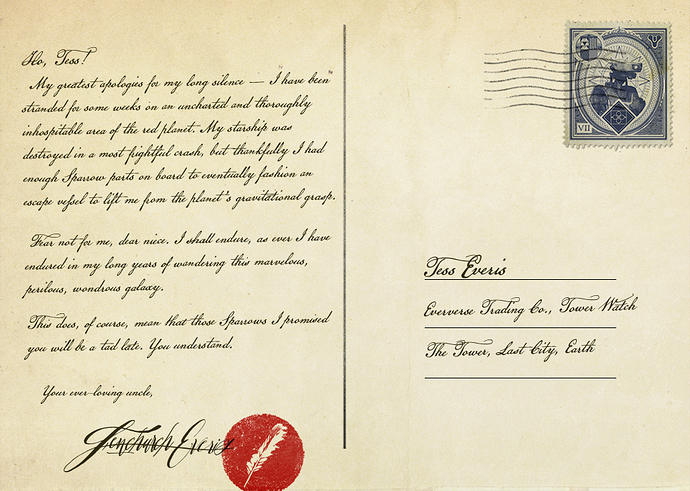 Ho, Tess!
My greatest apologies for my long silence — I have been
stranded for some weeks on an uncharted and thoroughly
inhospitable area of the red planet. My starship was
destroyed in a most frightful crash, but thankfully I had
enough Sparrow parts on board to eventually fashion an
escape vessel to lift me from the planet's gravitational grasp.
Fear not for me, dear niece. I shall endure, as ever I have
endured in my long years of wandering this marvelous,
perilous, wondrous galaxy.
This does, of course, mean that those Sparrows I promised
you will be a tad late. You understand.
Your ever-loving uncle,
Fenchurch Everis
VII
Tess Everis
Eververse Trading Co., Tower Watch
The Tower, Last City, Earth